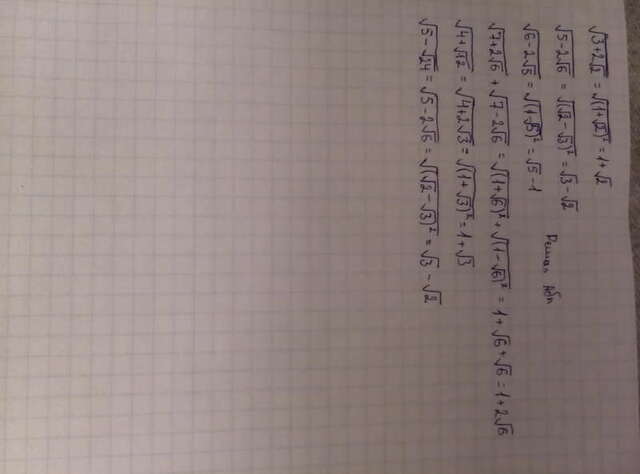 √(3+2√2) = √((1+√2)²) = 1+√2
√(5-2√6) = √((√2-√3)²) = √3-√2
√(6-2√5) = √((1-√5)²) = √5-1
√(7+2√6) + √(7-2√6) = √((1+√6)²) + √((1-√6)²) = 1+√6+√6 = 1+2√6
√(4+√12) = √(4+2√3) = √((1+√3)²) = 1+√3
√(5-√24) = √(5-2√6) = √((√2-√3)²) = √3-√2